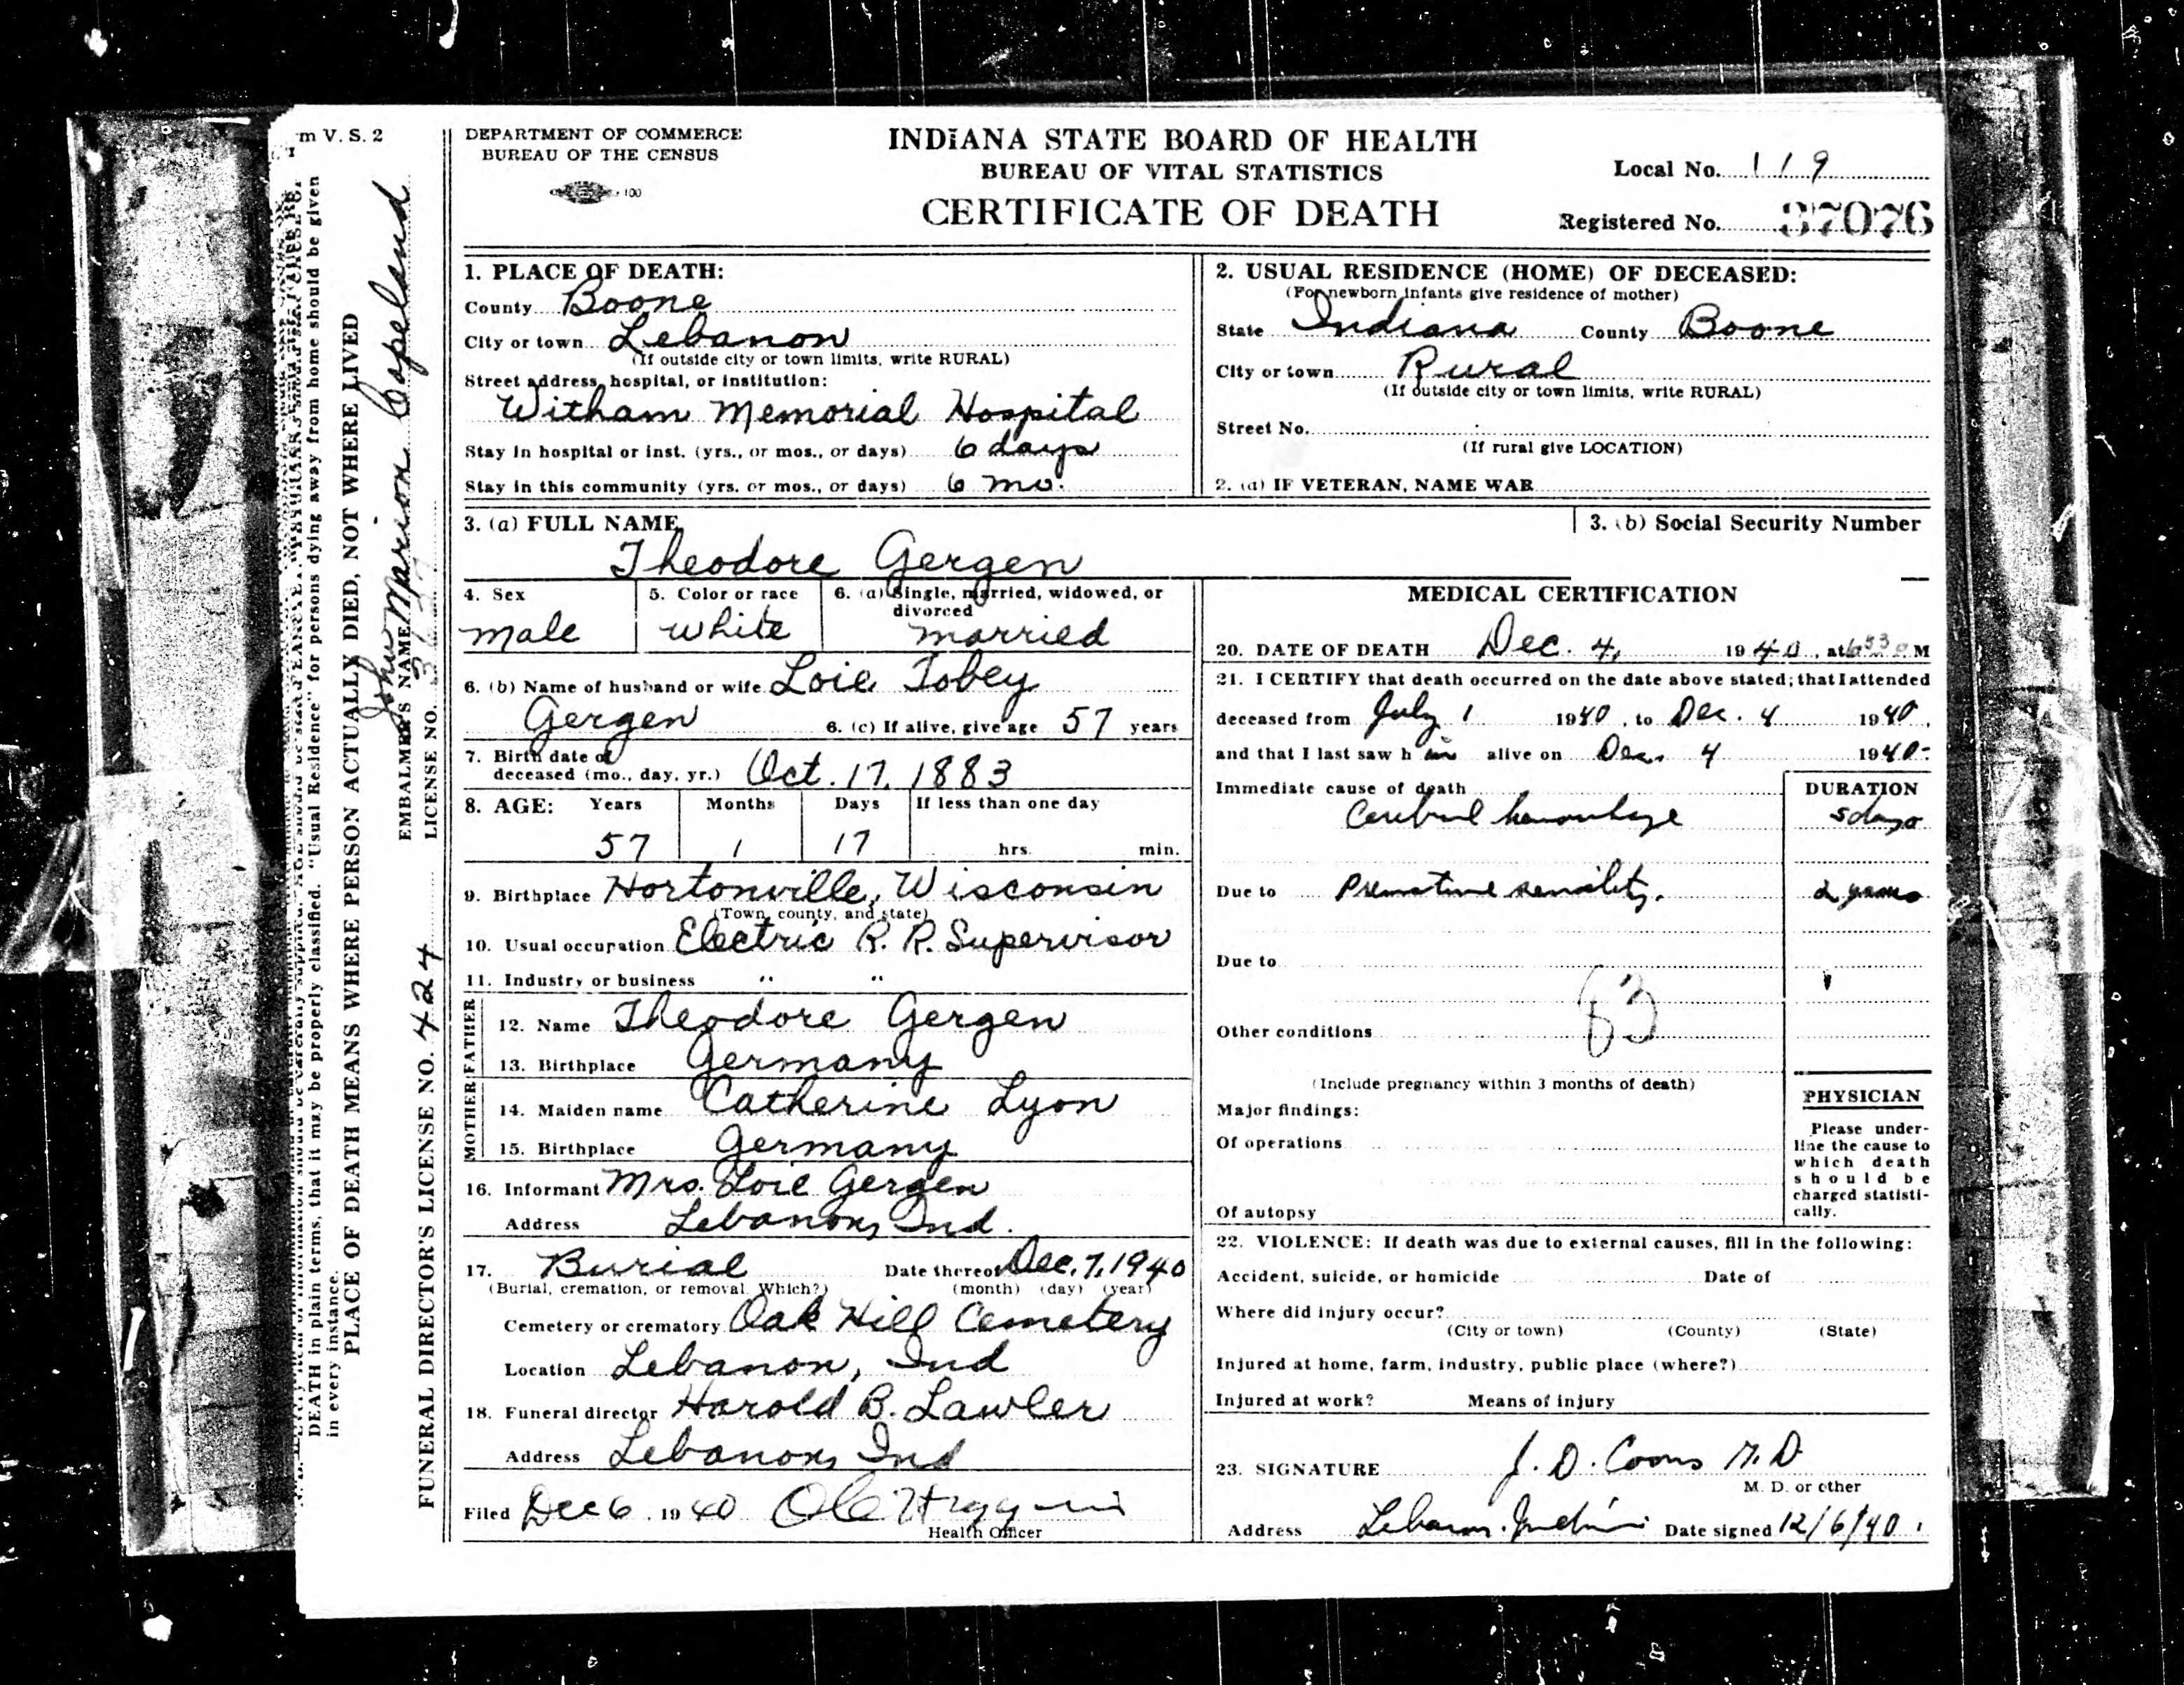 m V. S. 2
DEATH in plain terms, that it may be properly classified. "Usual Residence" for persons dying away from home should be given
in every instance.
PLACE OF DEATH MEANS WHERE PERSON ACTUALLY DIED, NOT WHERE LIVED
John Marion Copeland
EMBALMER'S NAME
FUNERAL DIRECTOR'S LICENSE NO. 424 LICENSE NO.
DEPARTMENT OF COMMERCE
BUREAU OF THE CENSUS
100
INDIANA STATE BOARD OF HEALTH
BUREAU OF VITAL STATISTICS
CERTIFICATE OF DEATH
Local No. 119
Registered No. 37076
1. PLACE OF DEATH:
County Boone
City or town Lebanon
(If outside city or town limits, write RURAL)
Street address, hospital, or institution:
Witham Memorial Hospital
Stay in hospital or inst. (yrs., or mos., or days) 6 days
Stay in this community (yrs. or mos., or days) 6 mo.
2. USUAL RESIDENCE (HOME) OF DECEASED:
(For newborn infants give residence of mother)
State Indiana County Boone
City or town Rural
(If outside city or town limits, write RURAL)
Street No.
(If rural give LOCATION)
2. (a) IF VETERAN, NAME WAR
3. (a) FULL NAME
Theodore Gergen
3. (b) Social Security Number
4. Sex
male
5. Color or race
white
6. (a) Single, married, widowed, or
divorced
married
6. (b) Name of husband or wife Loie Tobey
Gergen 6. (c) If alive, give age 57 years
7. Birth date of
deceased (mo., day, yr.) Oct. 17, 1883
8. AGE: Years Months Days If less than one day
57 1 17 hrs. min.
9. Birthplace Hortonville, Wisconsin
(Town, county, and state)
10. Usual occupation Electric R. R. Supervisor
11. Industry or business " "
FATHER
12. Name Theodore Gergen
13. Birthplace Germany
MOTHER
14. Maiden name Catherine Lyon
15. Birthplace Germany
16. Informant Mrs. Loie Gergen
Address Lebanon, Ind.
17. Burial Date thereof Dec. 7, 1940
(Burial, cremation, or removal. Which?) (month) (day) (year)
Cemetery or crematory Oak Hill Cemetery
Location Lebanon, Ind
18. Funeral director Harold B. Lawler
Address Lebanon, Ind
Filed Dec 6, 1940
Health Officer
MEDICAL CERTIFICATION
20. DATE OF DEATH Dec. 4, 1940, at M
21. I CERTIFY that death occurred on the date above stated; that I attended
deceased from July 1 1940, to Dec. 4 1940,
and that I last saw h im alive on Dec. 4 1940.
Immediate cause of death DURATION
Cerebral hemorrhage 5 days
Due to Premature senility. 2 years
Due to
83
Other conditions
(Include pregnancy within 3 months of death)
Major findings:
Of operations
Of autopsy
PHYSICIAN
Please under-
line the cause to
which death
should be
charged statisti-
cally.
22. VIOLENCE: If death was due to external causes, fill in the following:
Accident, suicide, or homicide Date of
Where did injury occur?
(City or town) (County) (State)
Injured at home, farm, industry, public place (where?)
Injured at work? Means of injury
23. SIGNATURE J. D. Coons M. D
M. D. or other
Address Lebanon, Indiana Date signed 12/6/40.